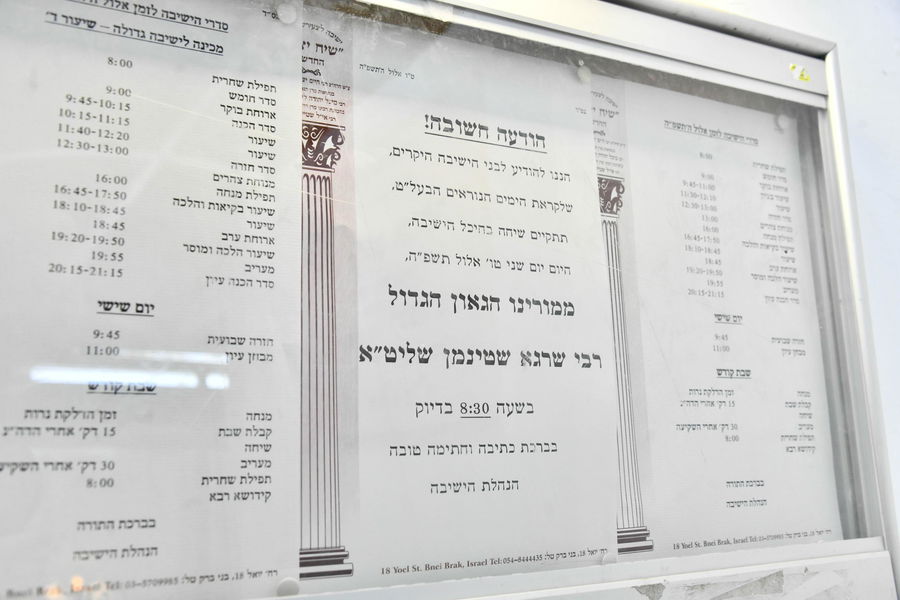 סדרי הישיבה לזמן אלול
מכינה לישיבה גדולה – שיעור ד'
תפילת שחרית 8:00
סדר חומש 9:00
ארוחת בוקר 9:45-10:15
סדר הכנה 10:15-11:15
שיעור 11:40-12:20
שיעור 12:30-13:00
סדר חזרה
מנוחת צהרים
תפילת מנחה 16:00
שיעור בקיאות והלכה 16:45-17:50
שיעור 18:10-18:45
ארוחת ערב 18:45
שיעור הלכה ומוסר 19:20-19:50
מעריב 19:55
סדר הכנה עיון 20:15-21:15
יום שישי
חזרה שבועית 9:45
מבחן עיון 11:00
שבת קודש
מנחה זמן הדלקת נרות
קבלת שבת 15 דק' אחרי הדה"נ
שיחה
מעריב 30 דק' אחרי השקיעה
תפילת שחרית 8:00
קידושא רבא
בברכת התורה
הנהלת הישיבה
רח' יואל 18, בני ברק טל: 03-5709985 Israel Tel:
ט"ו אלול ה'תשפ"ה
הודעה חשובה!
הננו להודיע לבני הישיבה היקרים,
שלקראת הימים הנוראים הבעל"ט,
תתקיים שיחה בהיכל הישיבה,
היום יום שני טו' אלול תשפ"ה,
ממורינו הגאון הגדול
רבי שרגא שטינמן שליט"א
בשעה 8:30 בדיוק
בברכת כתיבה וחתימה טובה
הנהלת הישיבה
18 Yoel St. Bnei Brak, Israel Tel: 054-8444435 רח' יואל 18, בני ברק טל:
סדרי הישיבה לזמן אלול ה'תשפ"ה
תפילת שחרית 8:00
סדר חומש 9:00
ארוחת בוקר 9:45-11:00
שיעור 11:30-12:30
12:30-13:00
13:00
תפילת מנחה 16:00
שיעור בקיאות והלכה 16:45-17:50
שיעור 18:10-18:45
ארוחת ערב 18:45
שיעור הלכה ומוסר 19:20-19:50
מעריב 19:55
סדר הכנה עיון 20:15-21:15
יום שישי
חזרה שבועית 9:45
מבחן עיון 11:00
שבת קודש
מנחה זמן הדלקת נרות
קבלת שבת 15 דק' אחרי הדה"נ
שיחה
מעריב 30 דק' אחרי השקיעה
תפילת שחרית 8:00
קידושא רבא
בברכת התורה
הנהלת הישיבה
18 Yoel St. Bnei Brak, Israel Tel: 03-5709985 רח' יואל 18, בני ברק טל: